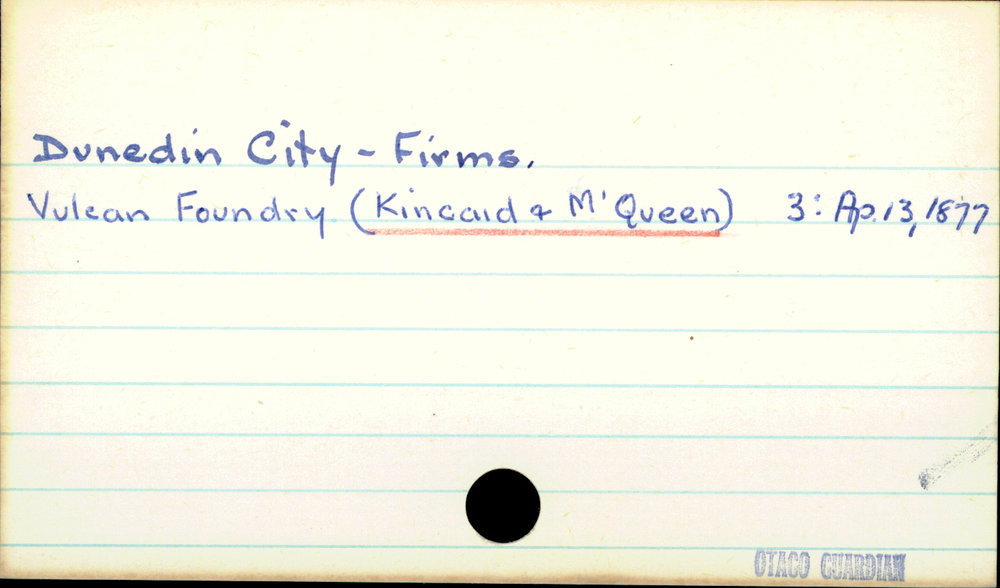 Dunedin City - Firms.
Vulcan Foundry (Kincaid & M'Queen) 3: Ap. 13, 1877
OTAGO GUARDIAN